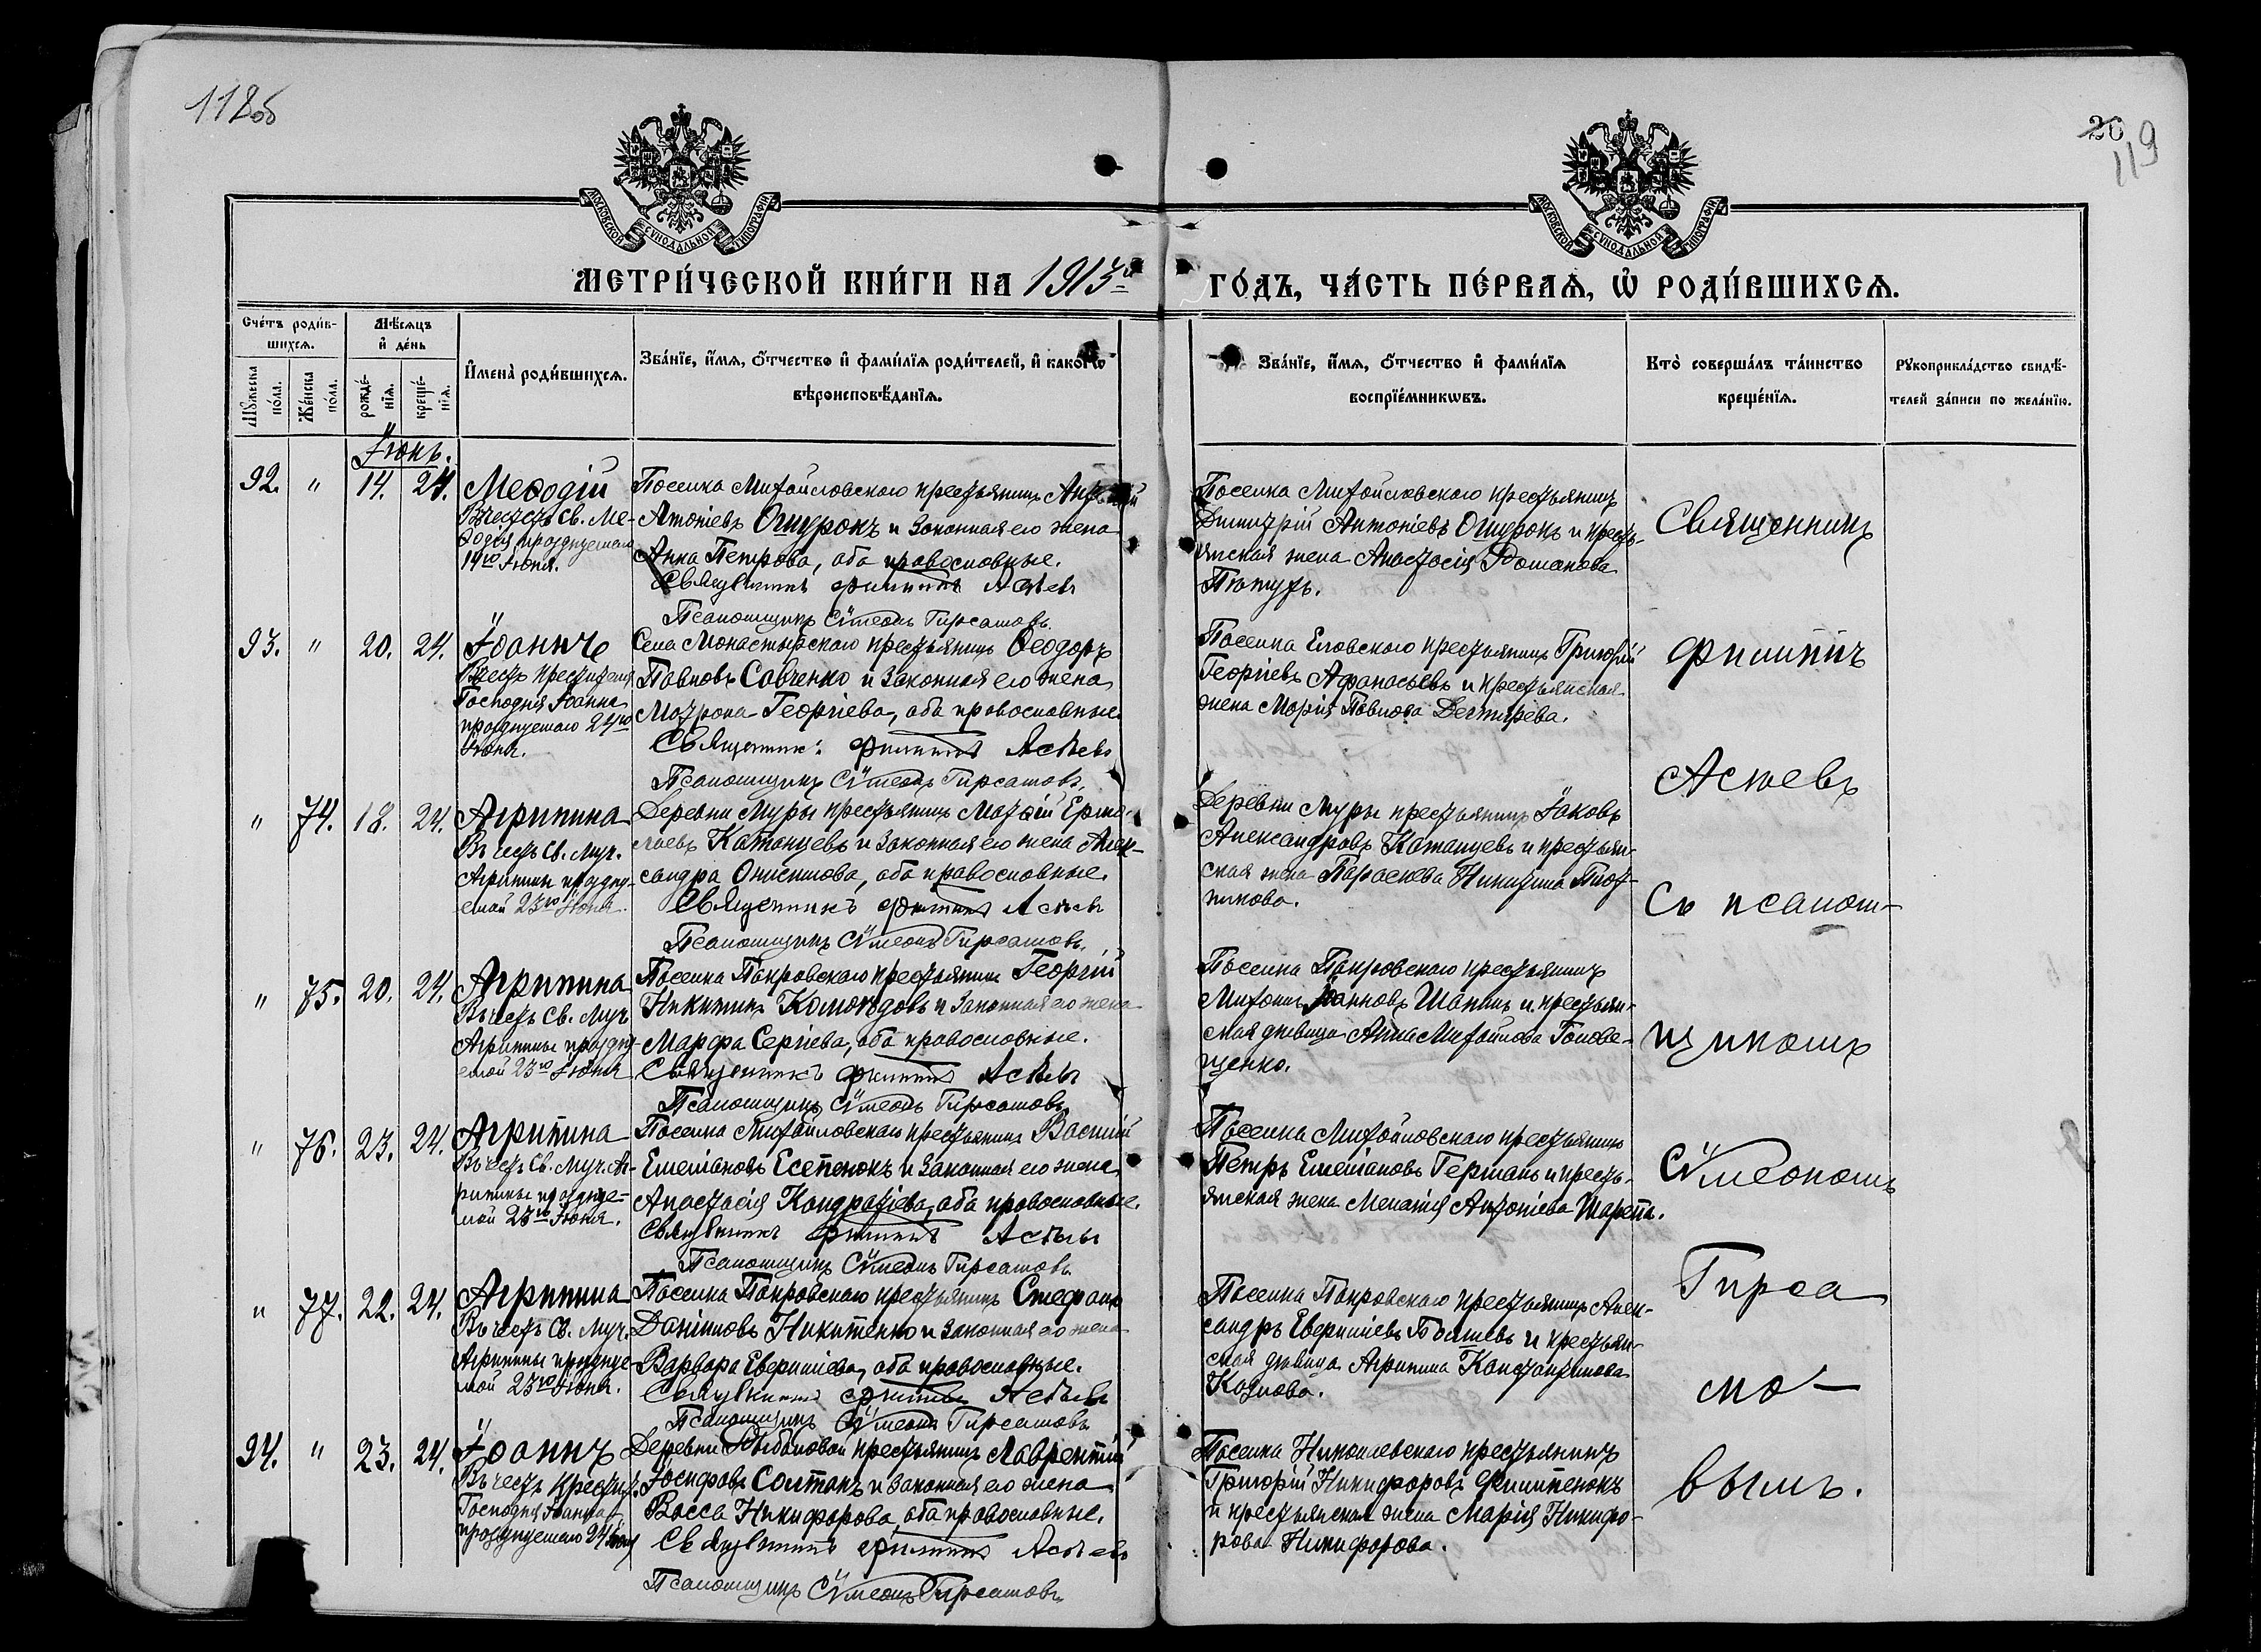 118об
26
119
МОСКОВСКОЙ СѴНОДАЛЬНОЙ ТИПОГРАФІИ
МОСКОВСКОЙ СѴНОДАЛЬНОЙ ТИПОГРАФІИ
МЕТРИ́ЧЕСКОЙ КНИ́ГИ НА 1913й
ГО́ДЪ, ЧА́СТЬ ПЕ́РВАѦ, Ѡ҆ РОДИ́ВШИХСѦ.
Сче́тъ роди́в-
шихсѧ.
Мѣ́сѧцъ
и҆ де́нь
И҆мена̀ роди́вшихсѧ.
Зва́нїе, и҆́мѧ, ѻ҆́тчество и҆ фами́лїѧ роди́телей, и҆ како́гѡ
вѣроисповѣ́данїѧ.
Зва́нїе, и҆́мѧ, ѻ҆́тчество и҆ фами́лїѧ
воспрїе́мникѡвъ.
Кто̀ соверша́лъ та́инство
креще́нїѧ.
Рꙋкоприкла́дство свидѣ́-
телей за́писи по жела́нїю.
Мꙋ́жеска
по́ла.
Же́нска
по́ла.
рожде́-
нїѧ.
креще́-
нїѧ.
Іюнь.
92. " 14. 24. Меѳодій
Въ честь Св. Ме-
ѳодія празднуемаго
14го Іюня.
Поселка Михайловскаго крестьянинъ
Антоніевъ Ошурокъ и законная его жена
Анна Петрова, оба православные.
Священникъ Филиппъ Асѣевъ
Псаломщикъ Сѵмеонъ Тирсамовъ.
Поселка Михайловскаго крестьянинъ
Димитрій Антоніевъ Ошурокъ и кресть-
янская жена Анастасія Романова
93. " 20. 24. Іоаннъ
Въ честь Крестителя
Господня Іоанна
празднуемаго 24го
Іюня.
Села Монастырскаго крестьянинъ Ѳеодоръ
Павловъ Савченко и законная его жена
Матрона Георгіева, оба православные.
Священникъ Филиппъ Асѣевъ
Псаломщикъ Сѵмеонъ Тирсамовъ.
Поселка Еловскаго крестьянинъ Григорій
Георгіевъ Афанасьевъ и крестьянская
жена Марія Павлова Дегтярева.
" 74. 18. 24. Агрипина
Въ честь Св. Муч.
Агрипины праздну-
емой 23го Іюня.
Деревни Муры крестьянинъ Матѳій Ермо-
лаевъ Катанцевъ и законная его жена Алек-
сандра Онисимова, оба православные.
Священникъ Филиппъ Асѣевъ
Псаломщикъ Сѵмеонъ Тирсамовъ.
Деревни Муры крестьянинъ Іаковъ
Александровъ Катанцевъ и крестьян-
ская жена Параскева Никитина Плот-
никова.
" 75. 20. 24. Агрипина
Въ честь Св. Муч.
Агрипины праздну-
емой 23го Іюня
Поселка Покровскаго крестьянинъ Георгій
Никитинъ и законная его жена
Марфа Сергіева, оба православные.
Священникъ Филиппъ Асѣевъ
Псаломщикъ Сѵмеонъ Тирсамовъ
Поселка Покровскаго крестьянинъ
Іоанновъ Шапинъ и крестьян-
ская дѣвица Анна Михайлова Голове-
щенко.
" 76. 23. 24. Агрипина
Въ честь Св. Муч. Аг-
рипины праздуне-
мой 23го Іюня.
Поселка Михайловскаго крестьянинъ Василій
Емеліановъ Есепенокъ и законная его жена
Анастасія Кондратіева, оба православные.
Священникъ Филиппъ Асѣевъ
Псаломщикъ Сѵмеонъ Тирсамовъ
Поселка Михайловскаго крестьянинъ
Петръ Емеліановъ Германъ и кресть-
янская жена Меланія Антоніева Шарепа.
" 77. 22. 24. Агрипина
Въ честь Св. Муч.
Агрипины празднуе-
мой 23го Іюня.
Поселка Покровскаго крестьянинъ Стефанъ
Даніиловъ Никитенко и законная его жена
Варвара Евфиміева, оба православные.
Священникъ Филиппъ Асѣевъ
Псаломщикъ Сѵмеонъ Тирсамовъ
Поселка Покровскаго крестьянинъ Алек-
сандръ и крестьян-
ская дѣвица Агрипина Константинова
Козлова.
94. " 23. 24. Іоаннъ
Въ честь Крестит.
Господня Іоанна
празднуемаго 24 Іюня
Деревни крестьянинъ Лаврентій
Іосифовъ Солтанъ и законная его жена
Васса Никифорова, оба православные.
Священникъ Филиппъ Асѣевъ
Псаломщикъ Сѵмеонъ Тирсамовъ.
Поселка Николаевскаго крестьянинъ
Григорій Никифоровъ Филипенокъ
и крестьянская жена Марія Никифо-
рова Никифорова.
Священникъ
Филиппъ
Асѣевъ
Съ псалом-
щикомъ
Сѵмеономъ
Тирса
мо-
вымъ.